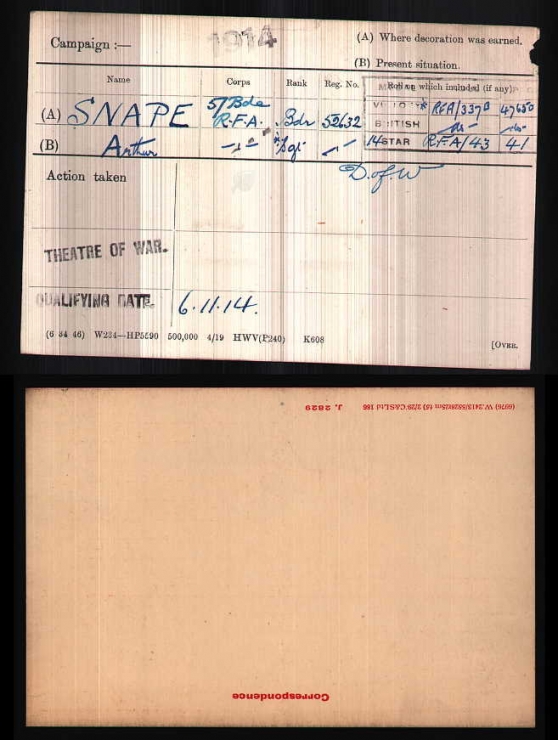 Campaign :— 1914 (A) Where decoration was earned.
(B) Present situation.
Name Corps Rank Reg. No. Roll on which included (if any)
5/Bde
(A) SNAPE R.F.A. Bdr 52632 VICTORY * RFA/337B 47650
BRITISH -do- -do-
(B) Arthur —"— * Sgt —"— 14 STAR R.F.A/43 41
Action taken D. of W
THEATRE OF WAR.
QUALIFYING DATE. 6.11.14.
(6 34 46) W234—HP5590 500,000 4/19 HWV(P240) K608 [OVER.
(6976) W.2413/5528 25m (5) 2/29 C.&S.Ltd 186 J. 2829
Correspondence